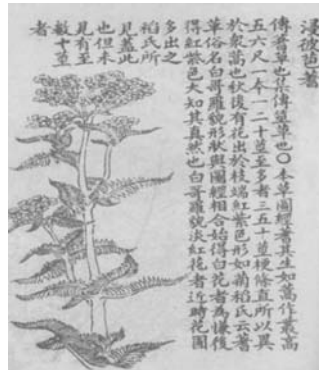 浸彼苞蓍
傳蓍草也集傳筮草也〇本草圖經蓍其生如蒿作叢高
五六尺一本一二十莖至多者三五十莖梗條直所以異
於衆蒿也秋後有花出於枝端紅紫色形如菊稻氏云蓍
草俗名白哥羅貌形狀與圖經相合始得白花者為慊後
得紅紫色大知其真然也白哥羅貌淡紅花者近時花圃
多出之
稻氏所
見蓋此
也但未
見有至
數十莖
者